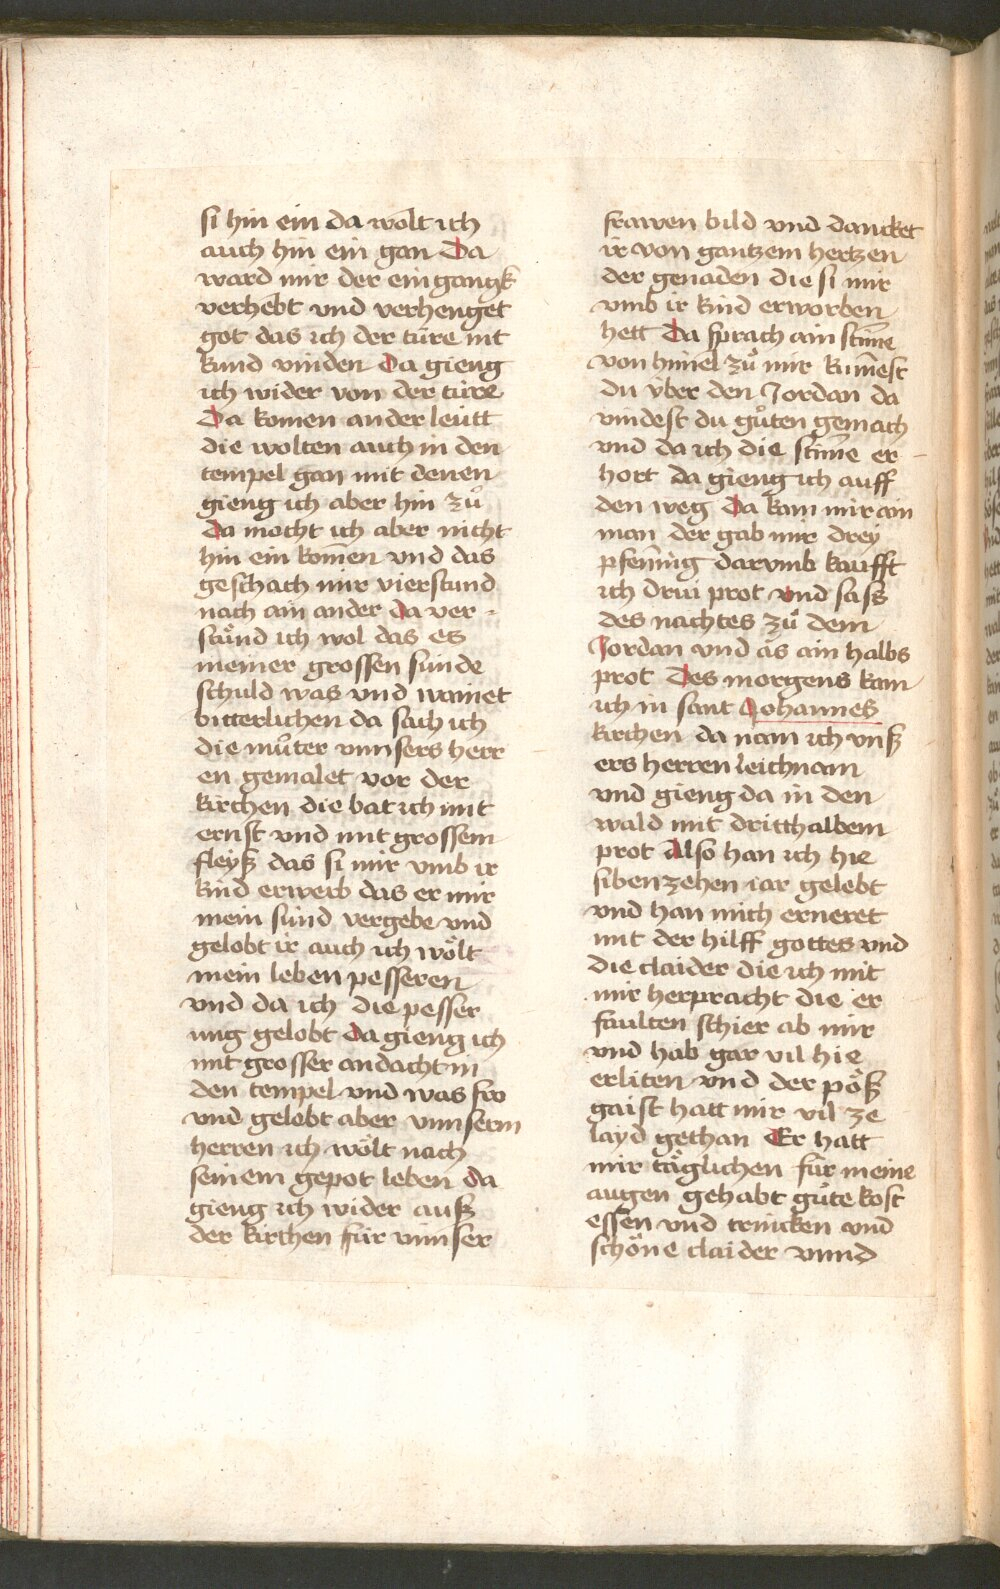 si hin ein da wolt ich
auch hin ein gan Da
ward mir der ein gangk
verhebt vnd verhenget
got das ich der türe nit
kund vinden Da gieng
ich wider von der türe
Da komen ander leütt
die wolten auch in den
tempel gan mit denen
gieng ich aber hin zuͦ
Da mocht ich aber nicht
hin ein kom̄en vnd das
geschach mir vierstund
nach ain ander da ver-
stuͦnd ich wol das es
meiner grossen sünde
schuld was vnd wainet
bitterlichen da sach ich
die muͦter vnnsers herr
en gemalet vor der
kirchen die bat ich mit
ernst vnd mit grossem
fleyß das si mir vmb ir
kind erwerb das er mir
mein sünd vergebe vnd
gelobt ir auch ich wölt
mein leben pesseren
vnd da ich die pesser
ung gelobt da gieng ich
mit grosser andacht in
den tempel vnd was fro
vnd gelobt aber vnnserm
herren ich wölt nach
seinem gepot leben da
gieng ich wider auß
der kirchen für vnnser
frawen bild vnd dancket
ir von gantzem hertzen
der genaden die si mir
vmb ir kind erworben
hett Da sprach ain stim̄e
von himel zuͦ mir kum̄est
du vber den Jordan da
vindest du guͦten gemach
vnd da ich die stim̄e er-
hort da gieng ich auff
den weg Da kam mir ain
man der gab mir drey
pfen̄ing darumb kaufft
ich drui prot vnd sass
des nachtes zuͦ dem
Jordan vnd as ain halbs
prot Des morgens kam
ich in sant Johannes
kirchen da nam ich vnß
ers herren leichnam
vnd gieng da in den
wald mit dritthalbem
prot Also han ich hie
sibenzehen iar gelebt
vnd han mich erneret
mit der hilff gottes vnd
die claider die ich mit
mir herpracht die er
faulten schier ab mir
vnd hab gar vil hie
erliten vnd der pöß
gaist hatt mir vil ze
layd gethan Er hatt
mir täglichen für meine
augen gehabt guͦte kost
essen vnd trincken vnd
schöne claider vnnd